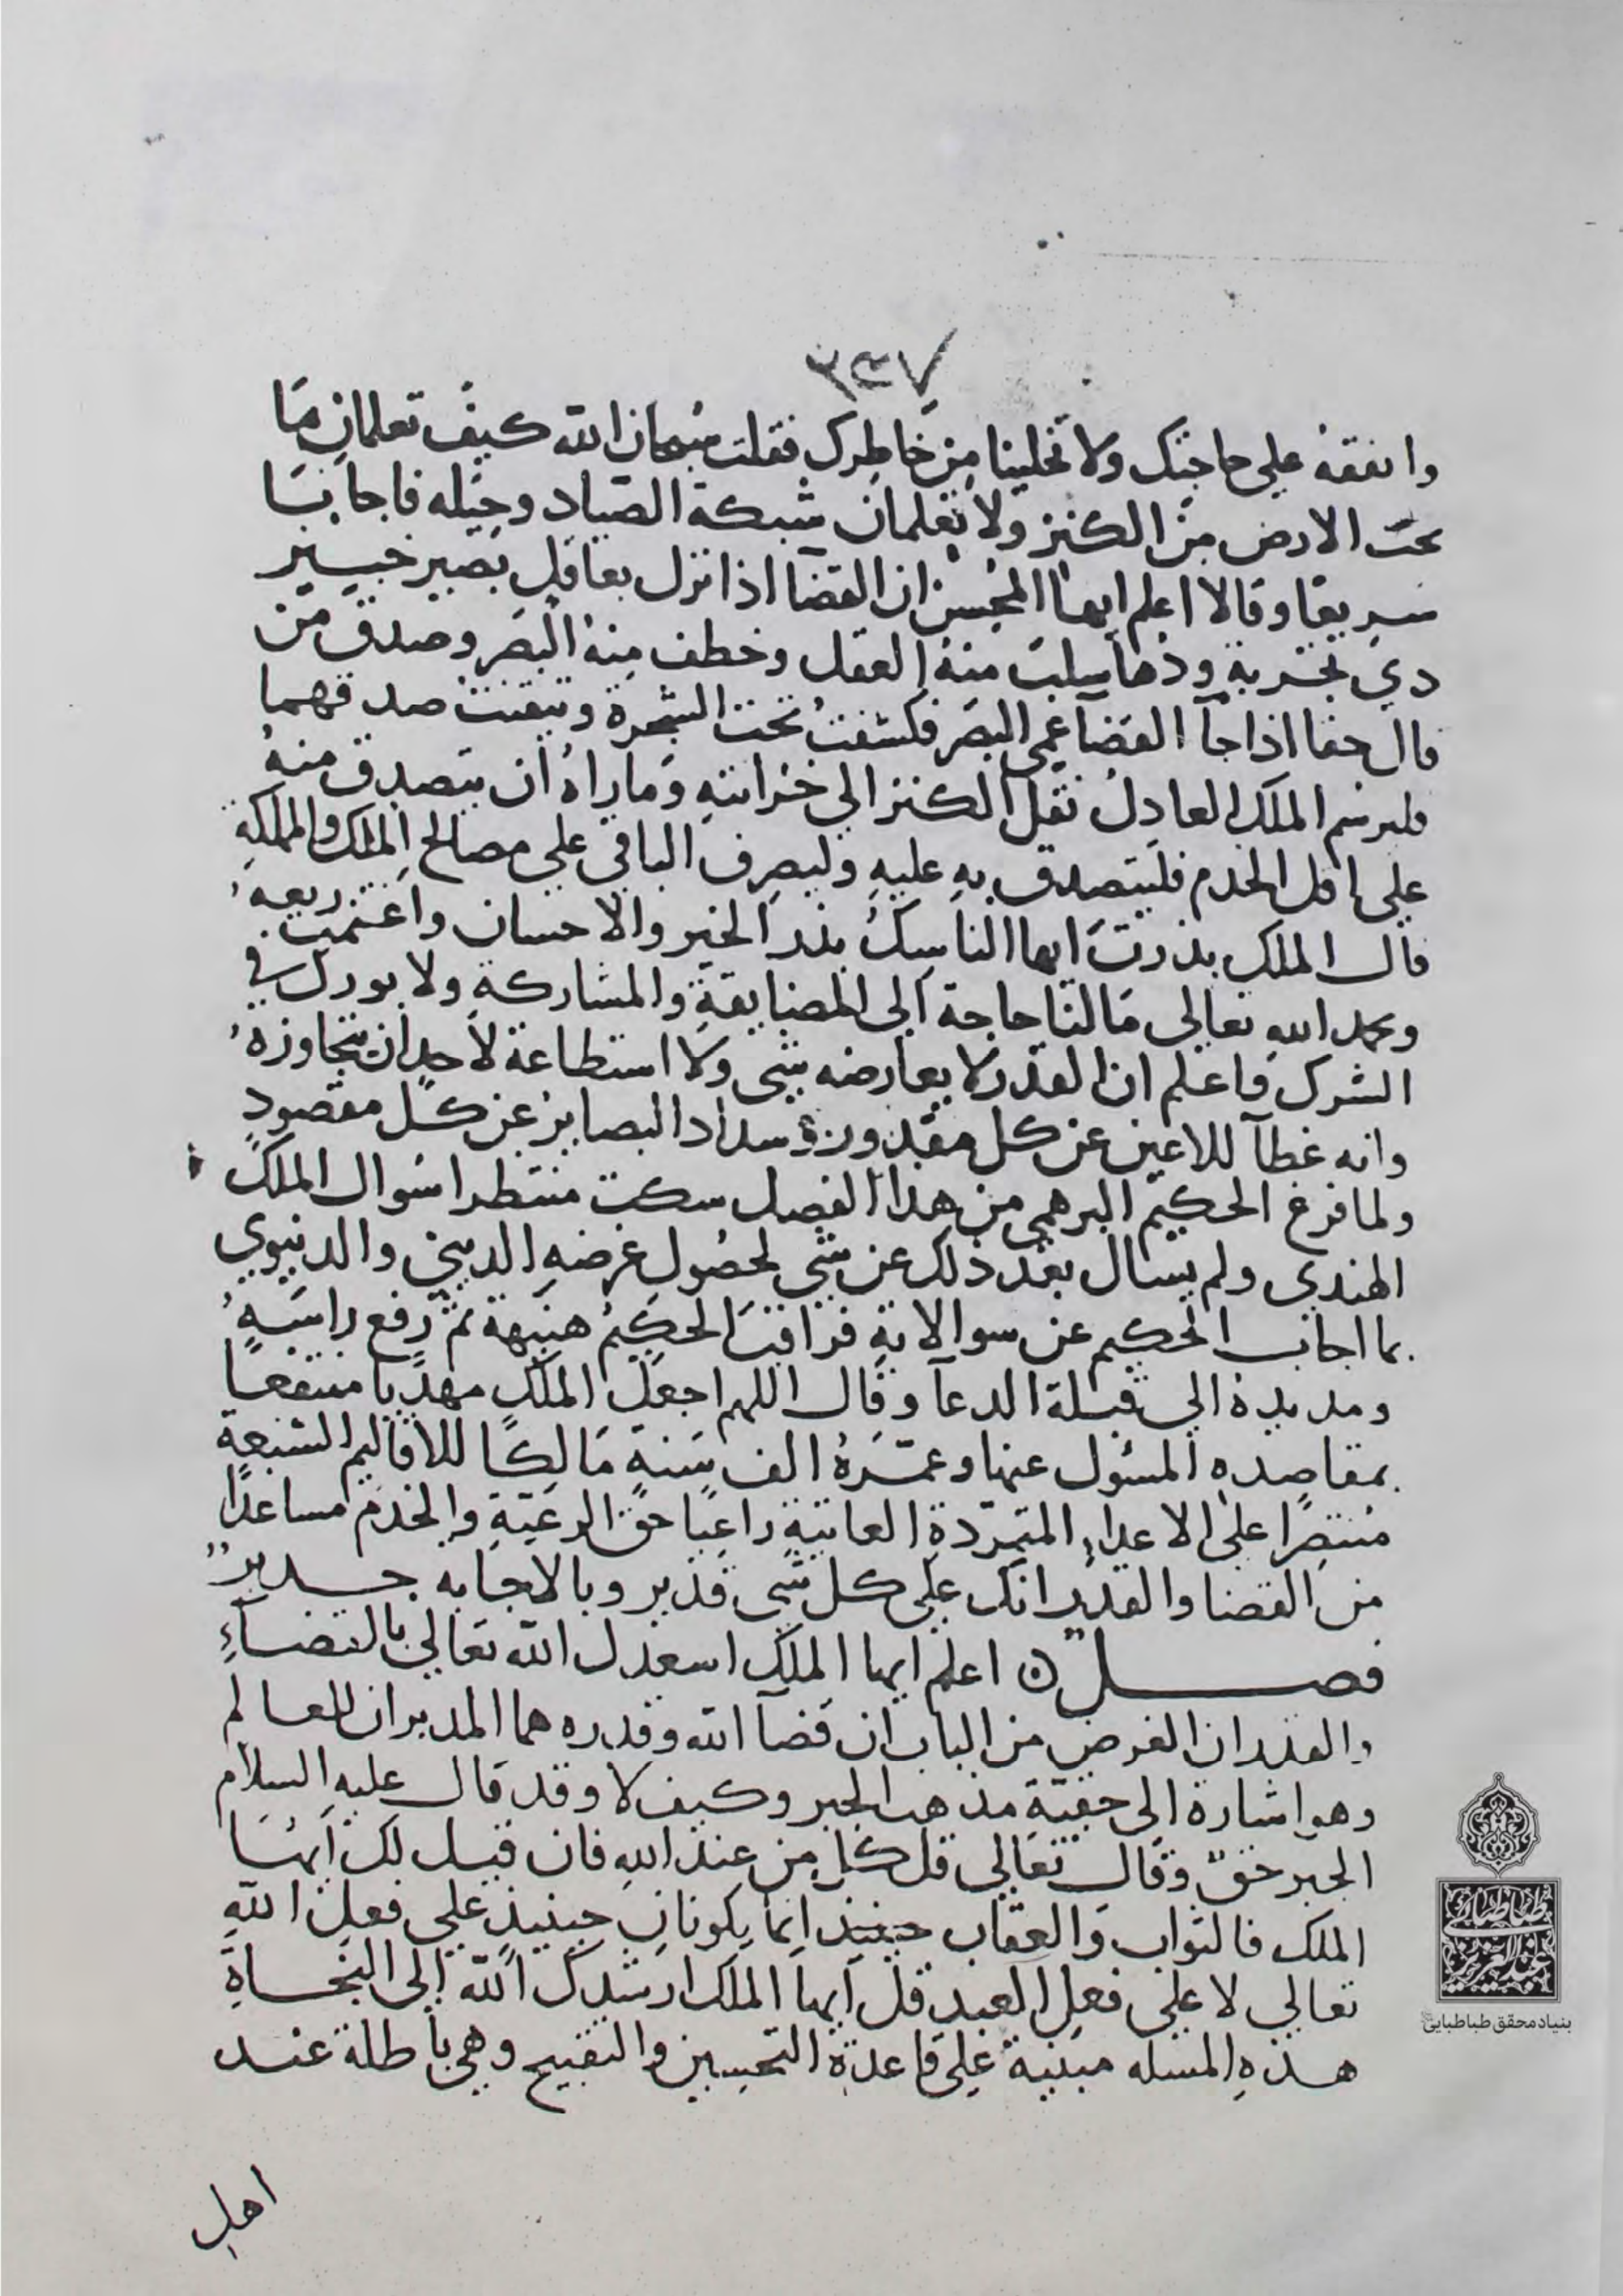 ٣٤٧
وانفقه على حاجتك ولا تخلينا من خاطرك فقلت سبحان الله كيف تعلمان ما
تحت الارض من الكنز ولا تعلمان شبكة الصياد وحيله فاجابنا
سريعا وقالا اعلم ايها المحسن ان القضا اذا نزل بعاقل بصير خبير
ذي تجربة ودها سلب منه العقل وخطف منه البصر وصدق من
قال حقا اذا جآ القضآ عمي البصر فكشفت تحت الشجرة وتيقنت صدقهما
فليرسم الملك العادل نقل الكنز الي خزانته وما راه ان يتصدق منه
على اقل الخدم فليتصدق به عليه وليصرف الباقي علي مصالح الملك والمملكة
قال الملك بذرت ايها الناسك بذر الخير والاحسان واغتنمت ريعه
وبحمد الله تعالى ما لنا حاجة الى المضايقة والمشاركة ولا بورك في
الشرك فاعلم ان القدر لا يعارضه شي ولا استطاعة لاحد ان يتجاوزه
وانه غطآ للاعين عن كل مقدور وسداد البصاير عن كل مقصود
ولما فرغ الحكيم البرهمي من هذا الفصل سكت منتظرا سوال الملك
الهندي ولم يسال بعد ذلك عن شي لحصول غرضه الديني والدنيوي
بما اجاب الحكيم عن سوالاته فراقب الحكيم هنيهة ثم رفع راسه
ومد يده الي قبلة الدعآ وقال اللهم اجعل الملك مهديا منتفعا
بمقاصده المسئول عنها وعمره الف سنة مالكا للاقاليم السبعة
منتصرا على الاعداء المتمردة العاتية راعيا حق الرعية والخدم مساعدا
من القضا والقدر انك على كل شي قدير وبالاجابه جدير
فصل اعلم ايها الملك اسعدك الله تعالي بالقضاء
والقدر ان الغرض من الباب ان قضآ الله وقدره هما المدبران للعالم
وهو اشارة الى حقية مذهب الجبر وكيف لا وقد قال عليه السلام
الجبر حق وقال تعالي قل كل من عند الله فان قيل لك ايها
الملك فالثواب والعقاب حينيذ انما يكونان حينيذ علي فعل الله
تعالي لا علي فعل العبد قل ايها الملك ارشدك الله الى النجاة
هذه المسله مبنية على قاعدة التحسين والتقبيح وهي باطلة عند
اهل
بنیاد محقق طباطبایی